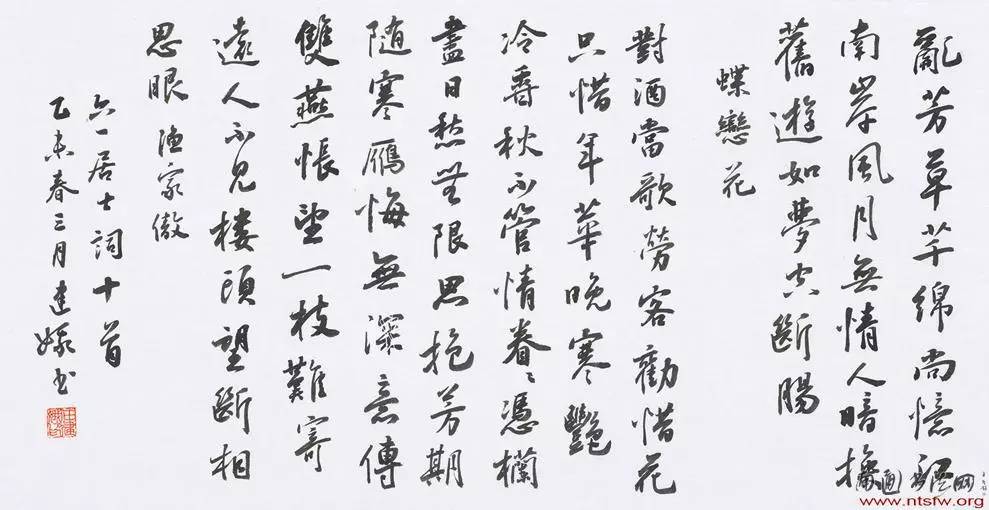 亂芳草芊綿尚憶江
南岸風月無情人暗換
舊遊如夢空斷腸
蝶戀花
對酒當歌勞客勸惜花
只惜年華晚寒艷
冷香秋不管情眷々憑欄
盡日愁無限思抱芳期
隨寒鴈悔無深意傳
雙燕悵望一枝難寄
遠人不見樓頭望斷相
思眼 漁家傲
六一居士詞十首
乙未春三月建书
www.ntsfw.org